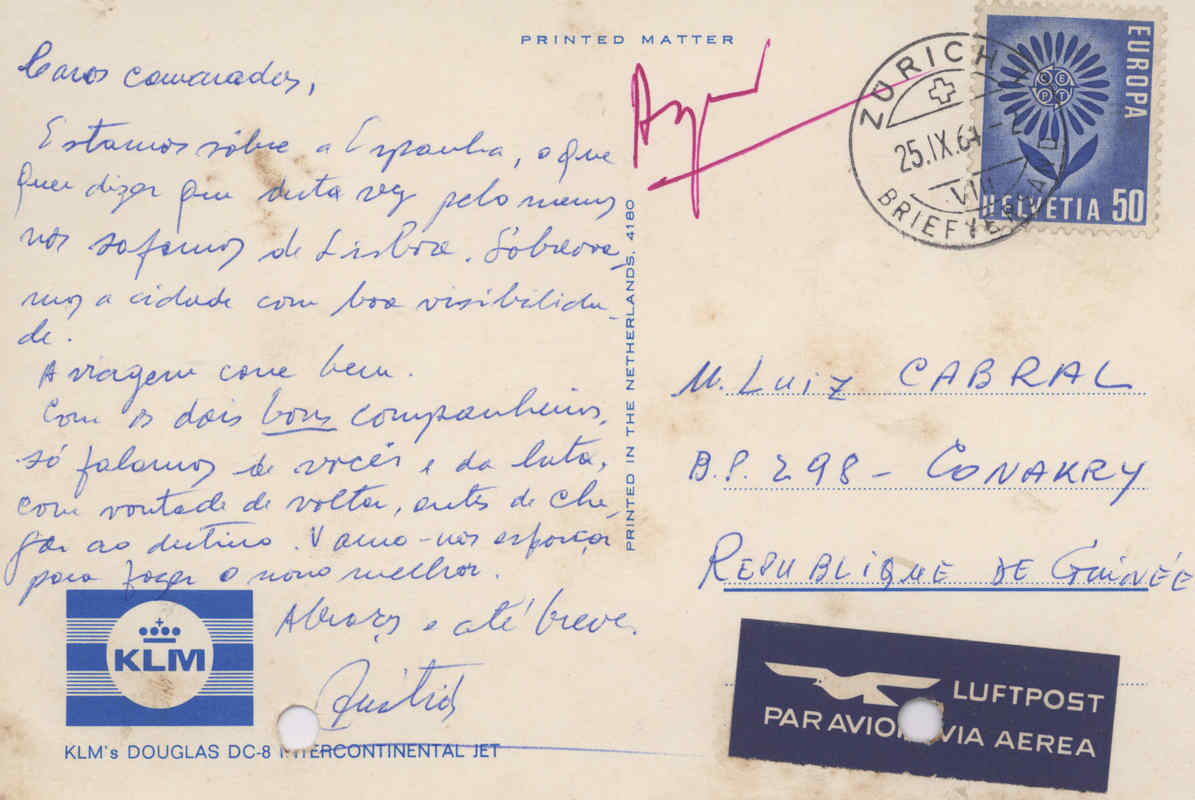 PRINTED MATTER
Caros camaradas,
Estamos sôbre a Espanha, o que
quer dizer que desta vez pelo menos
nos safamos de Lisboa. Sobrevoa-
mos a cidade com boa visibilida-
de.
A viagem corre bem.
Com os dois bons companheiros,
só falamos de vocês e da luta,
com vontade de voltar, antes de che-
gar ao destino. Vamo-nos esforçar
para fazer o nosso melhor.
Abraços e até breve.
KLM
KLM's DOUGLAS DC-8 INTERCONTINENTAL JET
PRINTED IN THE NETHERLANDS. 4180
ZURICH
25.IX.64
VIII
BRIEFVERSAND
EUROPA
CEPT
HELVETIA 50
M. LUIZ CABRAL
B.P. 298 - CONAKRY
REPUBLIQUE DE GUINÉE
LUFTPOST
PAR AVION VIA AEREA